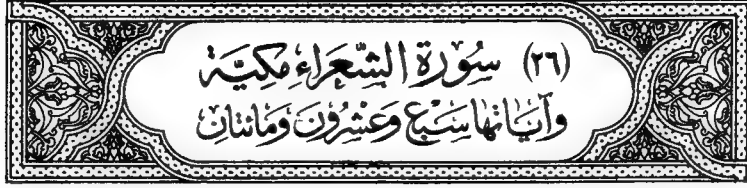 (٢٦) سُوْرَة الشُّعَرَاءِ مَكِيَّة
وَآيَاتهَا سَبْع وَعَشْرُونَ وَمَائتَان